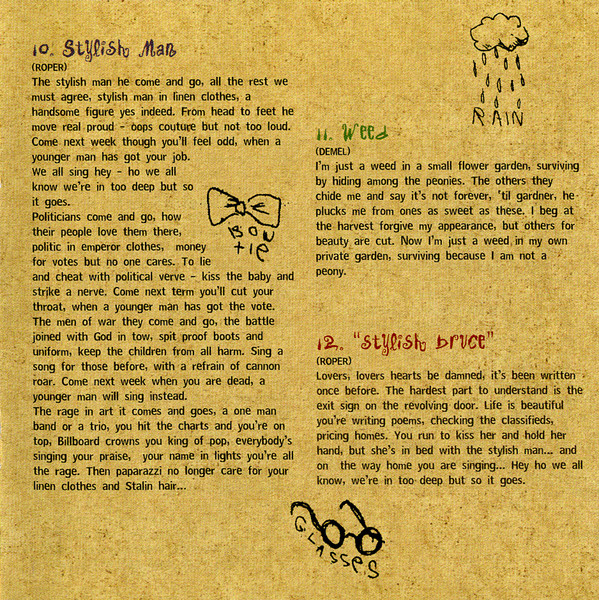 10. Stylish Man
(ROPER)
The stylish man he come and go, all the rest we
must agree, stylish man in linen clothes, a
handsome figure yes indeed. From head to feet he
move real proud - oops couture but not too loud.
Come next week though you'll feel odd, when a
younger man has got your job.
We all sing hey - ho we all
know we're in too deep but so
it goes.
Politicians come and go, how
their people love them there,
politic in emperor clothes, money
for votes but no one cares. To lie
and cheat with political verve - kiss the baby and
strike a nerve. Come next term you'll cut your
throat, when a younger man has got the vote.
The men of war they come and go, the battle
joined with God in tow, spit proof boots and
uniform, keep the children from all harm. Sing a
song for those before, with a refrain of cannon
roar. Come next week when you are dead, a
younger man will sing instead.
The rage in art it comes and goes, a one man
band or a trio, you hit the charts and you're on
top, Billboard crowns you king of pop, everybody's
singing your praise, your name in lights you're all
the rage. Then paparazzi no longer care for your
linen clothes and Stalin hair...
BOW
tie
RAIN
11. Weed
(DEMEL)
I'm just a weed in a small flower garden, surviving
by hiding among the peonies. The others they
chide and say it's not forever, 'til gardner, he
plucks me from ones as sweet as these. I beg at
the harvest forgive my appearance, but others for
beauty are cut. Now I'm just a weed in my own
private garden, surviving because I am not a
peony.
12. "Stylish Bruce"
(ROPER)
Lovers, lovers hearts be damned, it's been written
once before. The hardest part to understand is the
exit sign on the revolving door. Life is beautiful
you're writing poems, checking the classifieds,
pricing homes. You run to kiss her and hold her
hand, but she's in bed with the stylish man... and
on the way home you are singing... Hey ho we all
know, we're in too deep but so it goes.
GLASSES